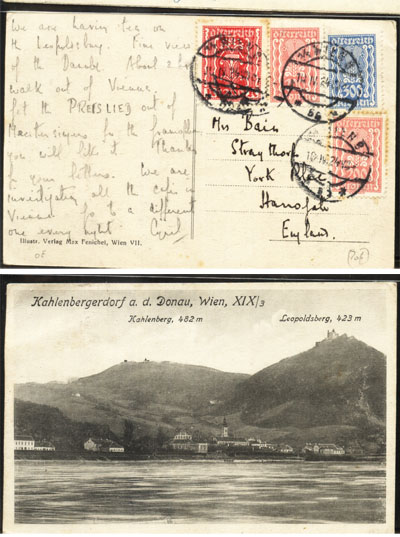 We are having tea on
the Leopoldsberg. Fine view
of the Danube. About 2 hrs
walk out of Vienna.
Get the PREISLIED out of
Meistersingers for the gramophone
you will like it. Thanks
for your letters. We are
investigating all the cafés in
Vienna go to a different
one every night. Cyril
Illustr. Verlag Max Fenichel, Wien VII.
Mrs Bain
Straythorpe
York Place
Harrogate
England.
ÖSTERREICH
WIEN
Kahlenbergerdorf a. d. Donau, Wien, XIX/3
Kahlenberg, 482 m
Leopoldsberg, 423 m